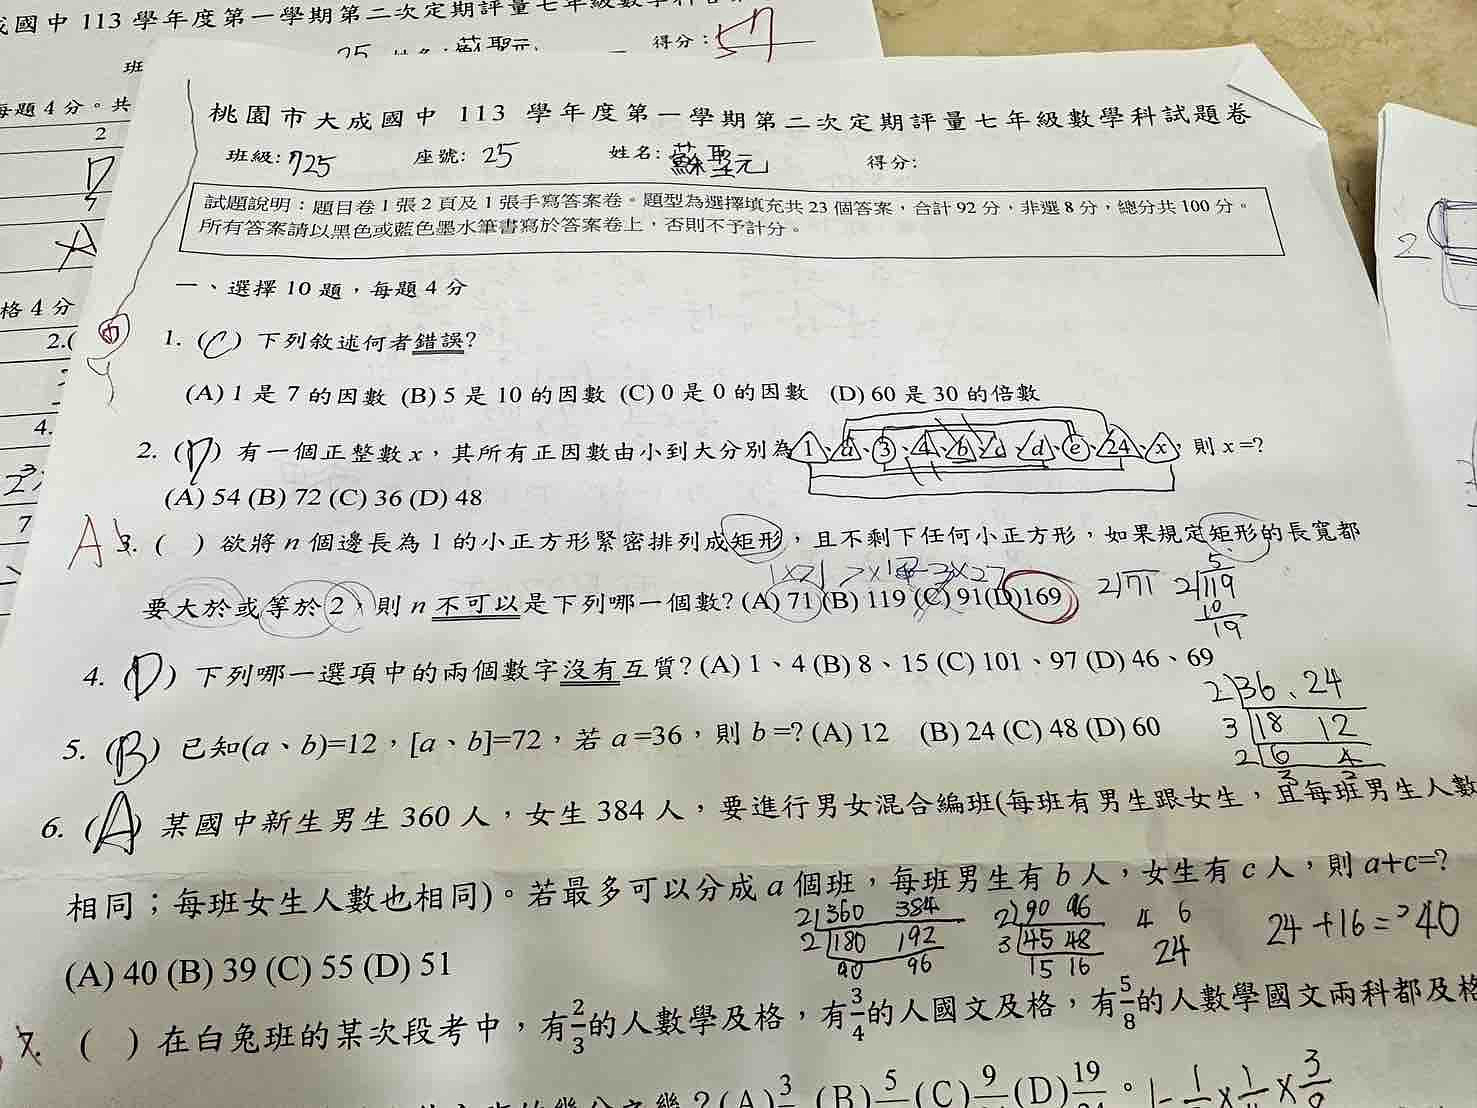 國中 113 學年度第一學期第二次定期評量七年級
25 蘇聖元
得分: 57
班
每題 4 分。共
2
D
格 4 分
2.(
4.
7
桃園市大成國中 113 學年度第一學期第二次定期評量七年級數學科試題卷
班級: 725 座號: 25 姓名: 蘇聖元 得分:
試題說明：題目卷 1 張 2 頁及 1 張手寫答案卷。題型為選擇填充共 23 個答案，合計 92 分，非選 8 分，總分共 100 分。
所有答案請以黑色或藍色墨水筆書寫於答案卷上，否則不予計分。
一、選擇 10 題，每題 4 分
1. (C) 下列敘述何者錯誤?
(A) 1 是 7 的因數 (B) 5 是 10 的因數 (C) 0 是 0 的因數 (D) 60 是 30 的倍數
2. (D) 有一個正整數 x，其所有正因數由小到大分別為 1、a、3、4、b、c、d、e、24、x，則 x =?
(A) 54 (B) 72 (C) 36 (D) 48
A 3. ( ) 欲將 n 個邊長為 1 的小正方形緊密排列成矩形，且不剩下任何小正方形，如果規定矩形的長寬都
要大於或等於 2，則 n 不可以是下列哪一個數? (A) 71 (B) 119 (C) 91 (D) 169
2 71 2 119
5
10
19
4. (D) 下列哪一選項中的兩個數字沒有互質? (A) 1、4 (B) 8、15 (C) 101、97 (D) 46、69
5. (B) 已知(a、b)=12，[a、b]=72，若 a =36，則 b =? (A) 12 (B) 24 (C) 48 (D) 60
2 36、24
3 18 12
2 6 4
3 2
6. (A) 某國中新生男生 360 人，女生 384 人，要進行男女混合編班(每班有男生跟女生，且每班男生人數
相同；每班女生人數也相同)。若最多可以分成 a 個班，每班男生有 b 人，女生有 c 人，則 a+c=?
2 360 384
2 180 192
90 96
2 90 96
3 45 48
15 16
4 6
24
24+16=40
(A) 40 (B) 39 (C) 55 (D) 51
7. ( ) 在白兔班的某次段考中，有2/3的人數學及格，有3/4的人國文及格，有5/8的人數學國文兩科都及格
? (A) 3 (B) 5 (C) 9 (D) 19 。